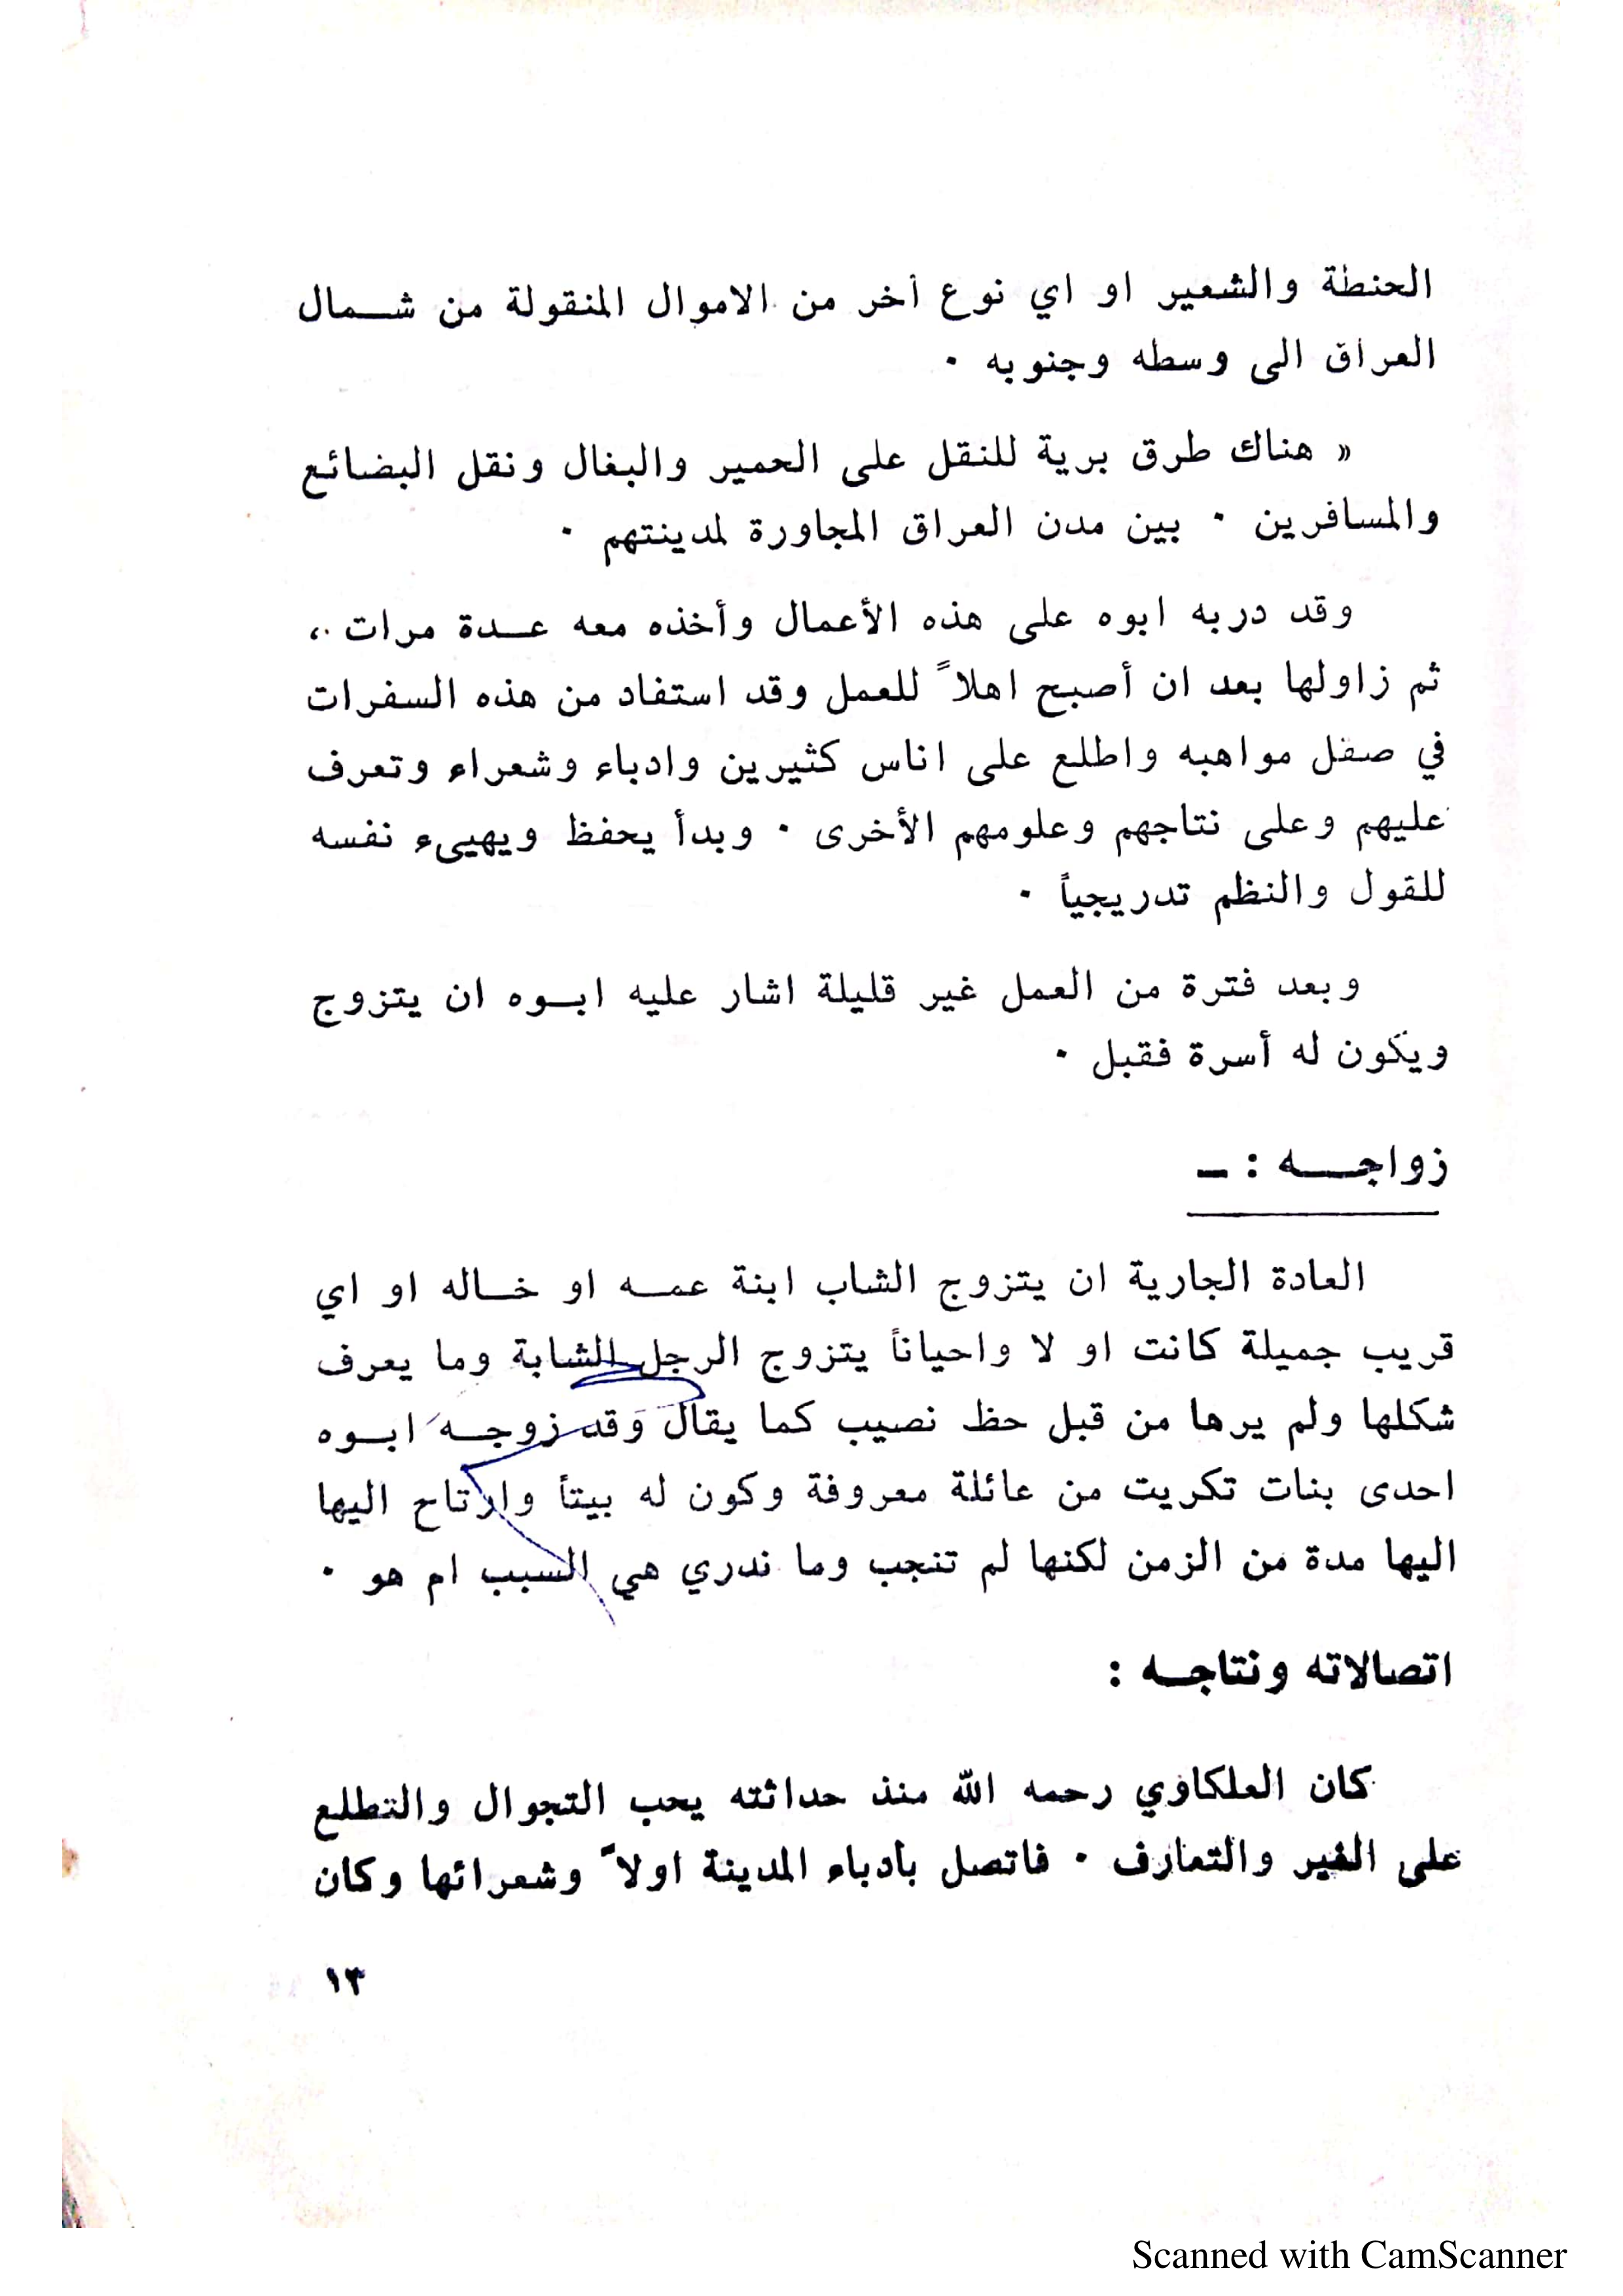 الحنطة والشعير او اي نوع أخر من الاموال المنقولة من شـــمال
العراق الى وسطه وجنوبه ٠
« هناك طرق برية للنقل على الحمير والبغال ونقل البضائع
والمسافرين ٠ بين مدن العراق المجاورة لمدينتهم ٠
وقد دربه ابوه على هذه الأعمال وأخذه معه عـــدة مرات ،
ثم زاولها بعد ان أصبح اهلاً للعمل وقد استفاد من هذه السفرات
في صقل مواهبه واطلع على اناس كثيرين وادباء وشعراء وتعرف
عليهم وعلى نتاجهم وعلومهم الأخرى ٠ وبدأ يحفظ ويهيىء نفسه
للقول والنظم تدريجياً ٠
وبعد فترة من العمل غير قليلة اشار عليه ابـــوه ان يتزوج
ويكون له أسرة فقبل ٠
زواجـــه : ــ
العادة الجارية ان يتزوج الشاب ابنة عمـــه او خـــاله او اي
قريب جميلة كانت او لا واحياناً يتزوج الرجل الشابة وما يعرف
شكلها ولم يرها من قبل حظ نصيب كما يقال وقد زوجـــه ابـــوه
احدى بنات تكريت من عائلة معروفة وكون له بيتاً وارتاح اليها
اليها مدة من الزمن لكنها لم تنجب وما ندري هي السبب ام هو ٠
اتصالاته ونتاجـــه :
كان العلكاوي رحمه الله منذ حداثته يحب التجوال والتطلع
على الغير والتعارف ٠ فاتصل بأدباء المدينة اولاً وشعرائها وكان
١٣
Scanned with CamScanner